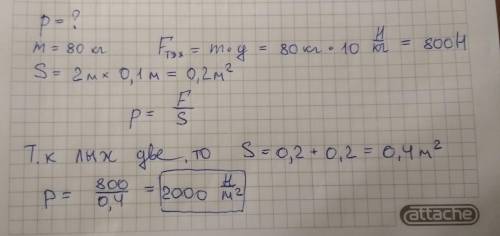 p = ?
m = 80 кг Fтяж = m·g = 80 кг · 10 Н/кг = 800Н
S = 2м × 0,1м = 0,2м²
p = F/S
Т.к лыж две, то S = 0,2 + 0,2 = 0,4м²
p = 800/0,4 = 2000 Н/м²
attache